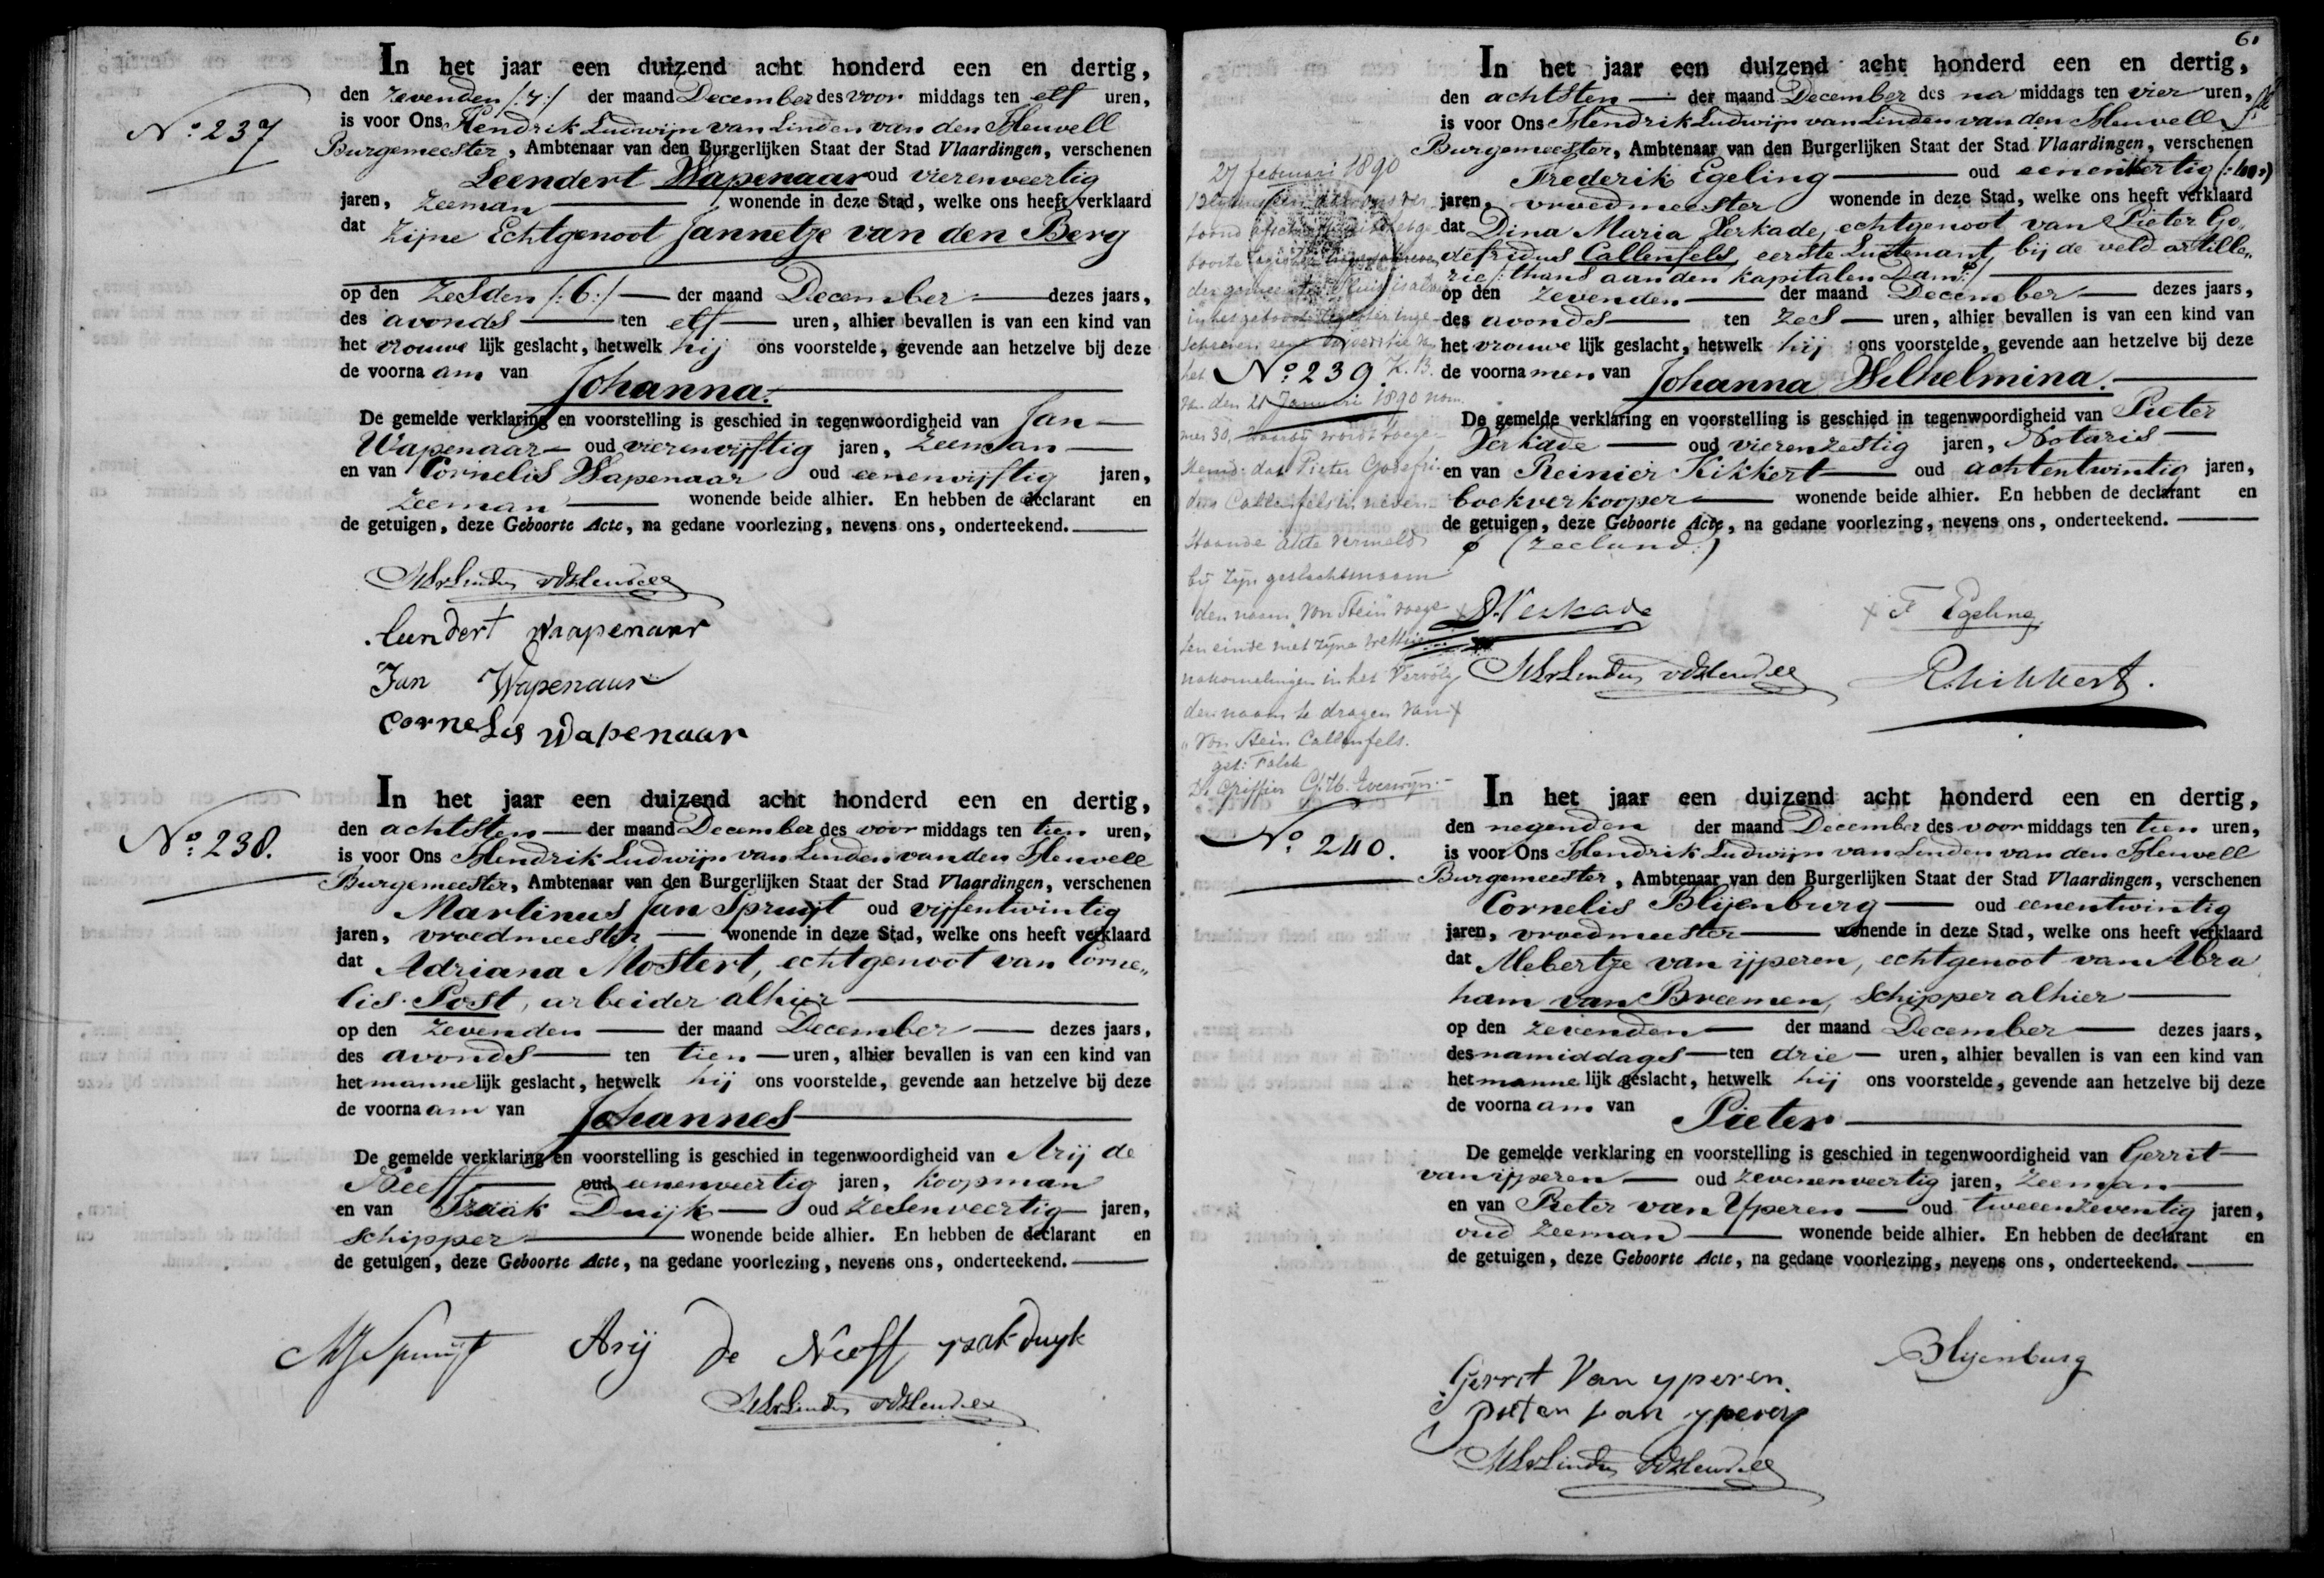 In het jaar een duizend acht honderd een en dertig,
den zevenden /:7:/ der maand December des voor middags ten elf uren,
No: 237
is voor Ons Hendrik Ludwijn van Linden van den Heuvell
Burgemeester, Ambtenaar van den Burgerlijken Staat der Stad Vlaardingen, verschenen
Leendert Wapenaar oud vierenveertig
jaren, Zeeman wonende in deze Stad, welke ons heeft verklaard
dat Zijne Echtgenoot Jannetje van den Berg
op den Zesden /:6:/ der maand December dezes jaars,
des avonds ten elf uren, alhier bevallen is van een kind van
het vrouwe lijk geslacht, hetwelk hij ons voorstelde, gevende aan hetzelve bij deze
de voorna am van Johanna.
De gemelde verklaring en voorstelling is geschied in tegenwoordigheid van Jan
Wapenaar oud vierenvijftig jaren, Zeeman
en van Cornelis Wapenaar oud eenenvijftig jaren,
Zeeman wonende beide alhier. En hebben de declarant en
de getuigen, deze Geboorte Acte, na gedane voorlezing, nevens ons, onderteekend.
HLvLinden vdHeuvell
leendert Waapenaar
Jan Wapenaar
Cornelis Wapenaar
In het jaar een duizend acht honderd een en dertig,
den achtsten der maand December des voor middags ten tien uren,
No: 238.
is voor Ons Hendrik Ludwijn van Linden van den Heuvell
Burgemeester, Ambtenaar van den Burgerlijken Staat der Stad Vlaardingen, verschenen
Martinus Jan Spruijt oud vijfentwintig
jaren, vroedmeester wonende in deze Stad, welke ons heeft verklaard
dat Adriana Mostert, echtgenoot van Corne„
lis Post, arbeider alhier
op den Zevenden der maand December dezes jaars,
des avonds ten tien uren, alhier bevallen is van een kind van
het manne lijk geslacht, hetwelk hij ons voorstelde, gevende aan hetzelve bij deze
de voorna am van Johannes
De gemelde verklaring en voorstelling is geschied in tegenwoordigheid van Arij de
Neeff oud eenenveertig jaren, Koopman
en van Izaäk Duijk oud Zesenveertig jaren,
Schipper wonende beide alhier. En hebben de declarant en
de getuigen, deze Geboorte Acte, na gedane voorlezing, nevens ons, onderteekend.
MJ Spruijt Arij de Neeff yzak duyk
HLvLinden vdHeuvell
61
In het jaar een duizend acht honderd een en dertig,
den achtsten der maand December des na middags ten vier uren,
is voor Ons Hendrik Ludwijn van Linden van den Heuvell
Burgemeester, Ambtenaar van den Burgerlijken Staat der Stad Vlaardingen, verschenen
Frederik Egeling oud
jaren, vroedmeester wonende in deze Stad, welke ons heeft verklaard
dat Dina Maria Verkade, echtgenoot van Pieter Go„
defridus Callenfels, eerste Luitenant, bij de veld artille„
rie /: thans aan den kapitalen Dam :/
op den Zevenden der maand December dezes jaars,
des avonds ten Zes uren, alhier bevallen is van een kind van
het vrouwe lijk geslacht, hetwelk hij ons voorstelde, gevende aan hetzelve bij deze
de voorna men van Johanna Wilhelmina.
De gemelde verklaring en voorstelling is geschied in tegenwoordigheid van Pieter
Verkade oud vierenzestig jaren, Notaris
en van Reinier Kikkert oud achtentwintig jaren,
boekverkooper wonende beide alhier. En hebben de declarant en
de getuigen, deze Geboorte Acte, na gedane voorlezing, nevens ons, onderteekend.
φ (Zeeland:)
P. Verkade
F Egeling
HLvLinden vdHeuvell
RKikkert.
27 februari 1890
No: 239.
van den 21 Januari 1890 num
mer 30, waarbij wordt toege-
staan dat Pieter Godefri-
dus Callenfels in neven-
staande akte vermeld
bij zijn geslachtsnaam
den naam "Von Stein" voege
ten einde met zijne wettige
nakomelingen in het vervolg
den naam te dragen van
"Von Stein Callenfels.
get: Falck
De Griffier
In het jaar een duizend acht honderd een en dertig,
den negenden der maand December des voor middags ten tien uren,
No: 240.
is voor Ons Hendrik Ludwijn van Linden van den Heuvell
Burgemeester, Ambtenaar van den Burgerlijken Staat der Stad Vlaardingen, verschenen
Cornelis Blijenburg oud eenentwintig
jaren, vroedmeester wonende in deze Stad, welke ons heeft verklaard
dat Mebertje van ijperen, echtgenoot van Abra
ham van Breemen, Schipper alhier
op den zevenden der maand December dezes jaars,
des namiddags ten drie uren, alhier bevallen is van een kind van
het manne lijk geslacht, hetwelk hij ons voorstelde, gevende aan hetzelve bij deze
de voorna am van Pieter
De gemelde verklaring en voorstelling is geschied in tegenwoordigheid van Gerrit
van ijperen oud zevenenveertig jaren, Zeeman
en van Pieter van Yperen oud tweeenzeventig jaren,
oud Zeeman wonende beide alhier. En hebben de declarant en
de getuigen, deze Geboorte Acte, na gedane voorlezing, nevens ons, onderteekend.
Blijenburg
Gerrit Van yperen
pieter van yperen
HLvLinden vdHeuvell